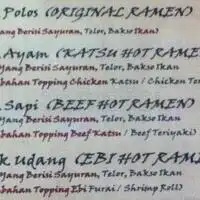 Polos (ORIGINAL RAMEN)
Yang Berisi Sayuran, Telor, Bakso Ikan)
Ayam (KATSU HOT RAME
Yang Berisi Sayuran, Telor, Bakso Ikan
mbahan Topping Chicken Katsu / Chicken Te
Sapi (BEEF HOT RAMEN)
Yang Berisi Sayuran, Telor, Bakso Ikan
mbahan Topping Beef Katsu / Beef Teriyaki)
k Udang (EBI HOT RAME
Yang Berisi Sayuran, Telor, Bakso Ikan
mbahan Topping Ebi Furai / Shrimp Roll)